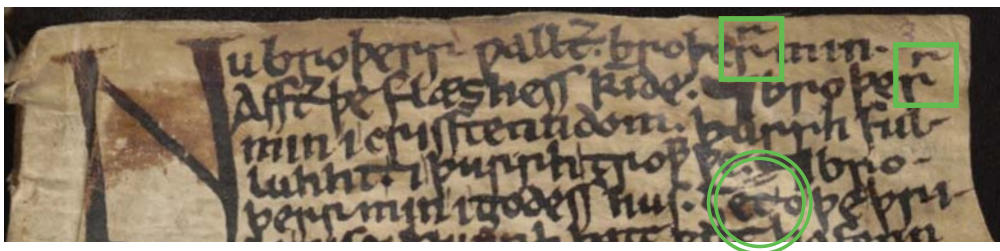 Nu broþerr ƿallt̃. broþer̃ min.
Afft̃ þe flæshess kinde. ⁊ broþer̃
min i crisstenndom. þurrh ful-
luhht. ⁊ þurrh troƿƿþe. ⁊ bro-
þerr min i godess hus. ȝet o þe þri-